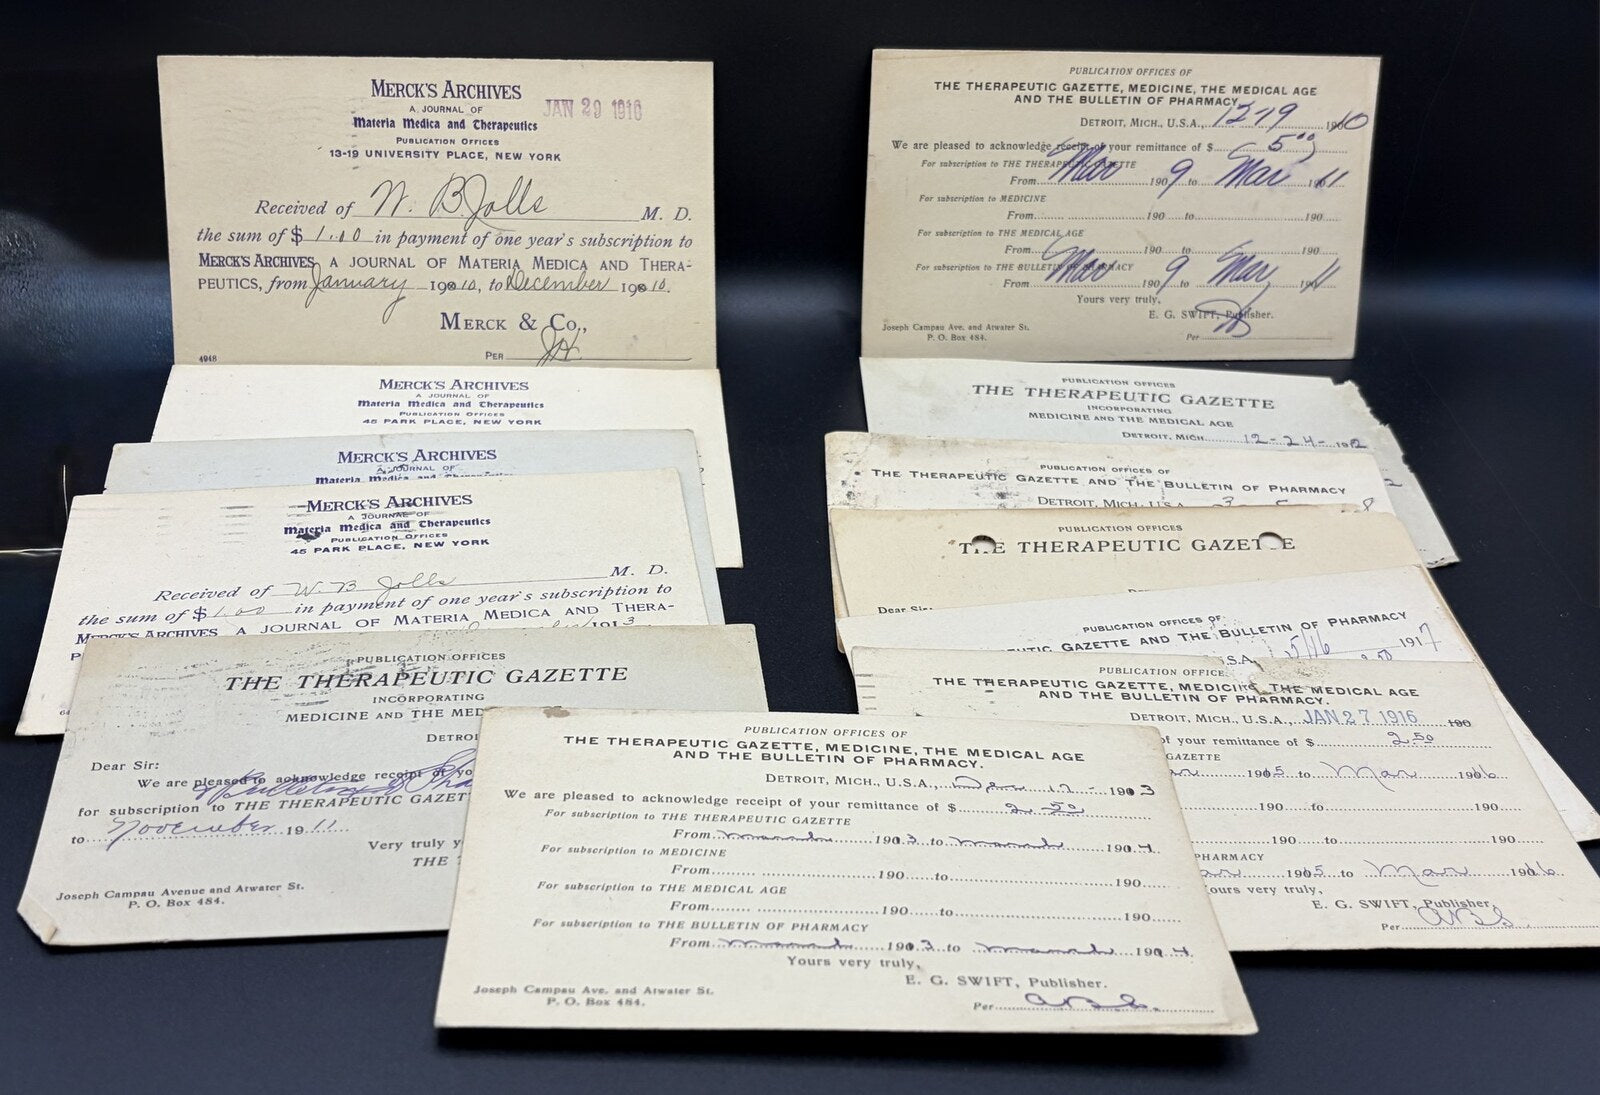 MERCK'S ARCHIVES
A JOURNAL OF
Materia Medica and Therapeutics
PUBLICATION OFFICES
13-19 UNIVERSITY PLACE, NEW YORK
JAN 29 1916
Received of W. B. Jolls M. D.
the sum of $ 1.00 in payment of one year's subscription to
MERCK'S ARCHIVES, A JOURNAL OF MATERIA MEDICA AND THERA-
PEUTICS, from January 1910, to December 1910.
MERCK & CO.,
4948
PER
MERCK'S ARCHIVES
A JOURNAL OF
Materia Medica and Therapeutics
PUBLICATION OFFICES
45 PARK PLACE, NEW YORK
MERCK'S ARCHIVES
A JOURNAL OF
Materia Medica and Therapeutics
MERCK'S ARCHIVES
A JOURNAL OF
Materia Medica and Therapeutics
PUBLICATION OFFICES
45 PARK PLACE, NEW YORK
Received of W. B. Jolls M. D.
the sum of $ 1.00 in payment of one year's subscription to
MERCK'S ARCHIVES, A JOURNAL OF MATERIA MEDICA AND THERA-
1913
PUBLICATION OFFICES
THE THERAPEUTIC GAZETTE
INCORPORATING
MEDICINE AND THE MED
DETRO
Dear Sir:
We are pleased to acknowledge receipt of yo
Bulletin of Pha
for subscription to THE THERAPEUTIC GAZET
to November 1911
Very truly y
THE
Joseph Campau Avenue and Atwater St.
P. O. Box 484.
PUBLICATION OFFICES OF
THE THERAPEUTIC GAZETTE, MEDICINE, THE MEDICAL AGE
AND THE BULLETIN OF PHARMACY.
DETROIT, MICH., U.S.A., 12-19 1910
We are pleased to acknowledge receipt of your remittance of $ 5.00
For subscription to THE THERAPEUTIC GAZETTE
From Mar 1909 to Mar 1911
For subscription to MEDICINE
From 190 to 190
For subscription to THE MEDICAL AGE
From 190 to 190
For subscription to THE BULLETIN OF PHARMACY
From Mar 1909 to Mar 1911
Yours very truly,
E. G. SWIFT, Publisher.
Joseph Campau Ave. and Atwater St.
P. O. Box 484.
Per
PUBLICATION OFFICES
THE THERAPEUTIC GAZETTE
INCORPORATING
MEDICINE AND THE MEDICAL AGE
DETROIT, MICH. 12-24-1912
PUBLICATION OFFICES OF
THE THERAPEUTIC GAZETTE AND THE BULLETIN OF PHARMACY
DETROIT, MICH., U.S.A. 3 8
PUBLICATION OFFICES
THE THERAPEUTIC GAZETTE
Dear Sir:
PUBLICATION OFFICES OF
UTIC GAZETTE AND THE BULLETIN OF PHARMACY
S.A. 5/16 1917
2.50
PUBLICATION OFFICE
THE THERAPEUTIC GAZETTE, MEDICINE, THE MEDICAL AGE
AND THE BULLETIN OF PHARMACY.
DETROIT, MICH., U.S.A., JAN 27 1916 190
of your remittance of $ 2.50
GAZETTE
1915 to Mar 1916
190 to 190
190 to 190
PHARMACY
1915 to Mar 1916
Yours very truly,
E. G. SWIFT, Publisher.
Per
PUBLICATION OFFICES OF
THE THERAPEUTIC GAZETTE, MEDICINE, THE MEDICAL AGE
AND THE BULLETIN OF PHARMACY.
DETROIT, MICH., U.S.A., Dec 17 - 1903
We are pleased to acknowledge receipt of your remittance of $ 2.50
For subscription to THE THERAPEUTIC GAZETTE
From March 1903 to March 1904
For subscription to MEDICINE
From 190 to 190
For subscription to THE MEDICAL AGE
From 190 to 190
For subscription to THE BULLETIN OF PHARMACY
From March 1903 to March 1904
Yours very truly,
E. G. SWIFT, Publisher.
Joseph Campau Ave. and Atwater St.
P. O. Box 484.
Per